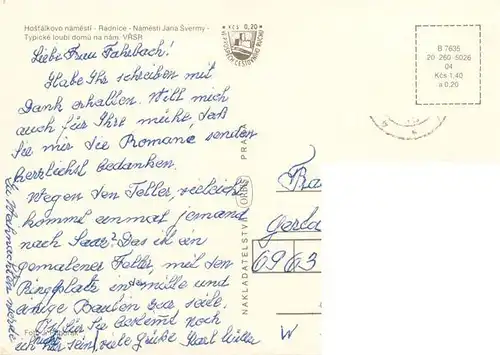 Hošťálkovo náměstí - Radnice - Náměstí Jana Švermy -
Typické loubí domů na nám. VŘSR
Kčs 0,20
B 7635
20 260 5026
04
Kčs 1,40
a 0,20
Liebe Frau Fahrbach!
Habe Ihr schreiben mit
Dank erhalten. Will mich
auch für Ihre mühe, daß
Sie mir die Romane, senden
herzlichst bedanken.
Wegen den Teller, vieleicht
kommt einmal jemand
nach Saaz? Das ist ein
gemalener Teller, mit den
Ringplatz in der mitte und
einige Bauten
noch
viele Grüße Karl
NAKLADATELSTVÍ ORBIS PRAHA
Gerla
6963
W